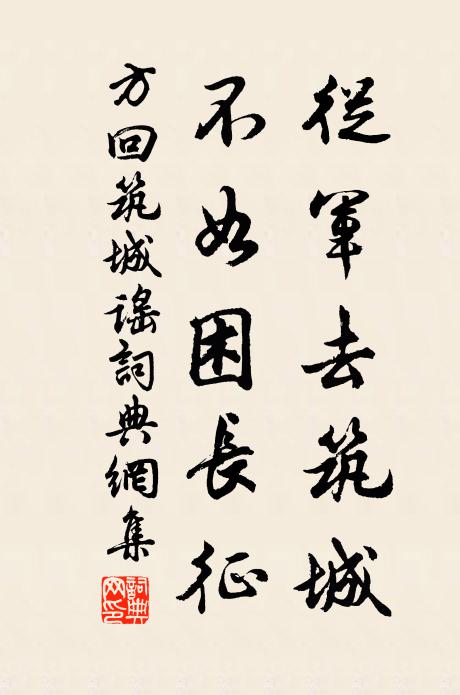 從軍去筑城
不如困長征
方回筑城謠詞典網集
詞典網印